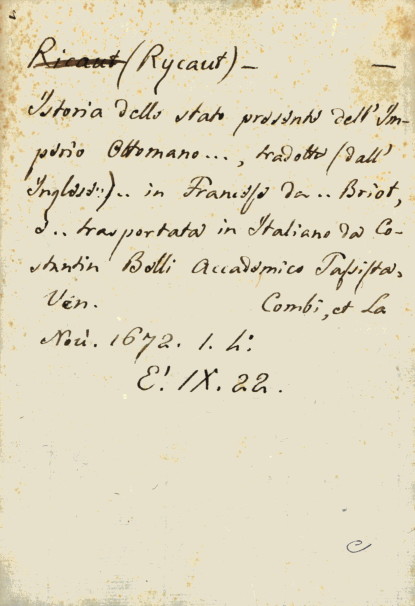 Ricaut (Rycaut) — —
Istoria dello stato presente dell' Im-
perio Ottomano..., tradotta (dall'
Inglese:).. in Francese da .. Briot,
e .. trasportata in Italiano da Co-
stantin Belli Accademico Tassista.
Ven. Combi, et La
Noù. 1672. 1. 4:
E! IX. 22.